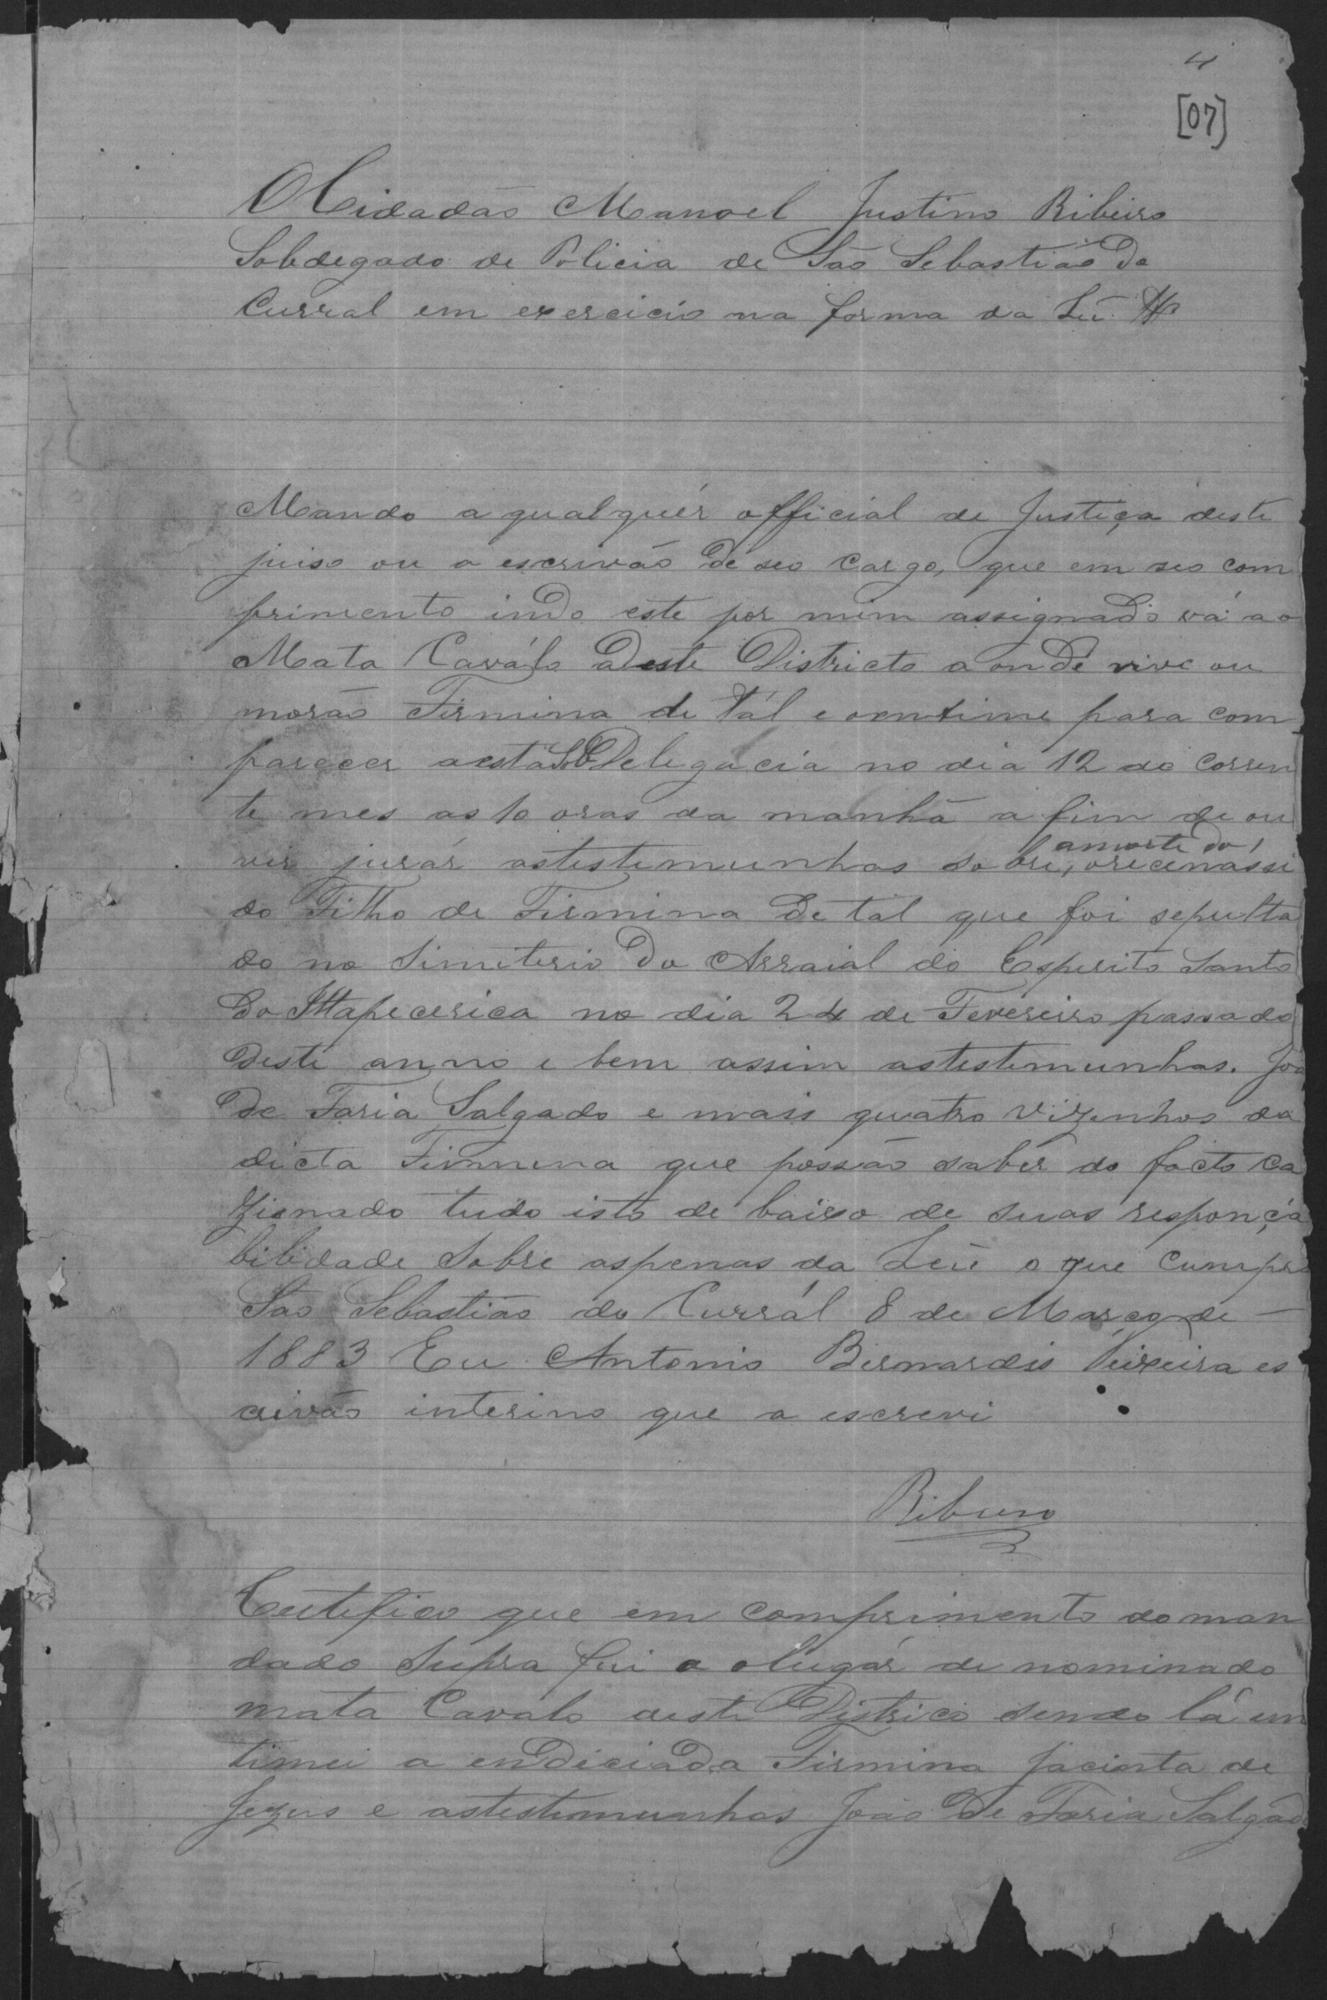 4
[07]
O Cidadão Manoel Justino Ribeiro
Sobdegado de Policia de São Sebastião do
Curral em exercicio na forma da Lei
Mando a qualquér official de Justiça deste
juiso ou o escrivão de seo cargo, que em seo com
primento indo este por mim assignado vá ao
Mata Caválo deste Districto aonde vive ou
morão Firmina de Tál e o entime para com
parecer a esta SubDelegacia no dia 12 do corren
te mes as 10 oras da manhã a fim de ou
vir jurár astestemunhas sobre, a morte do, orecennassi
do Filho de Firmina de tál que foi sepulta
do no Simiterio do Arraial do Esperito Santo
do Ittapecerica no dia 24 de Fevereiro passado
deste anno e bem assim astestemunhas. João
de Faria Salgado e mais quatro vizenhos da
dicta Firmina que possão sabér do facto ca
zionado tudo isto de baixo de suas responçá
bilidade sobre aspenas da Lei o que cumpra
São Sebastião do Currál 8 de Março de —
1883 Eu Antonio Bernardes Teixeira es
crivão interino que a escrevi
Ribeiro
Certifico que em comprimento do man
dado supra fui a olugár de nominado
mata Cavalo deste Districo sendo lá en
timei a endiciada Firmina Jacinta de
Jezus e astestemunhas João de Faria Salgado